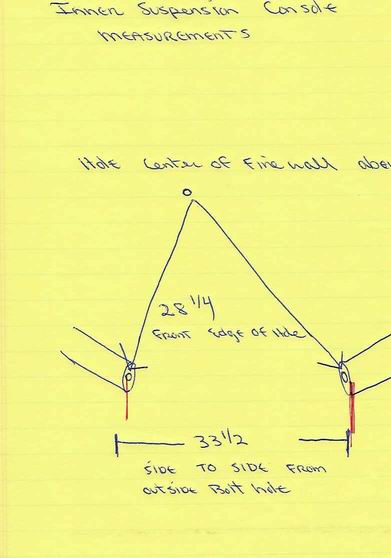 Inner Suspension Console
MEASUREMENTS
Hole Center of Firewall
28 1/4
Front Edge of Hole
33 1/2
SIDE TO SIDE FROM
outside Bolt hole